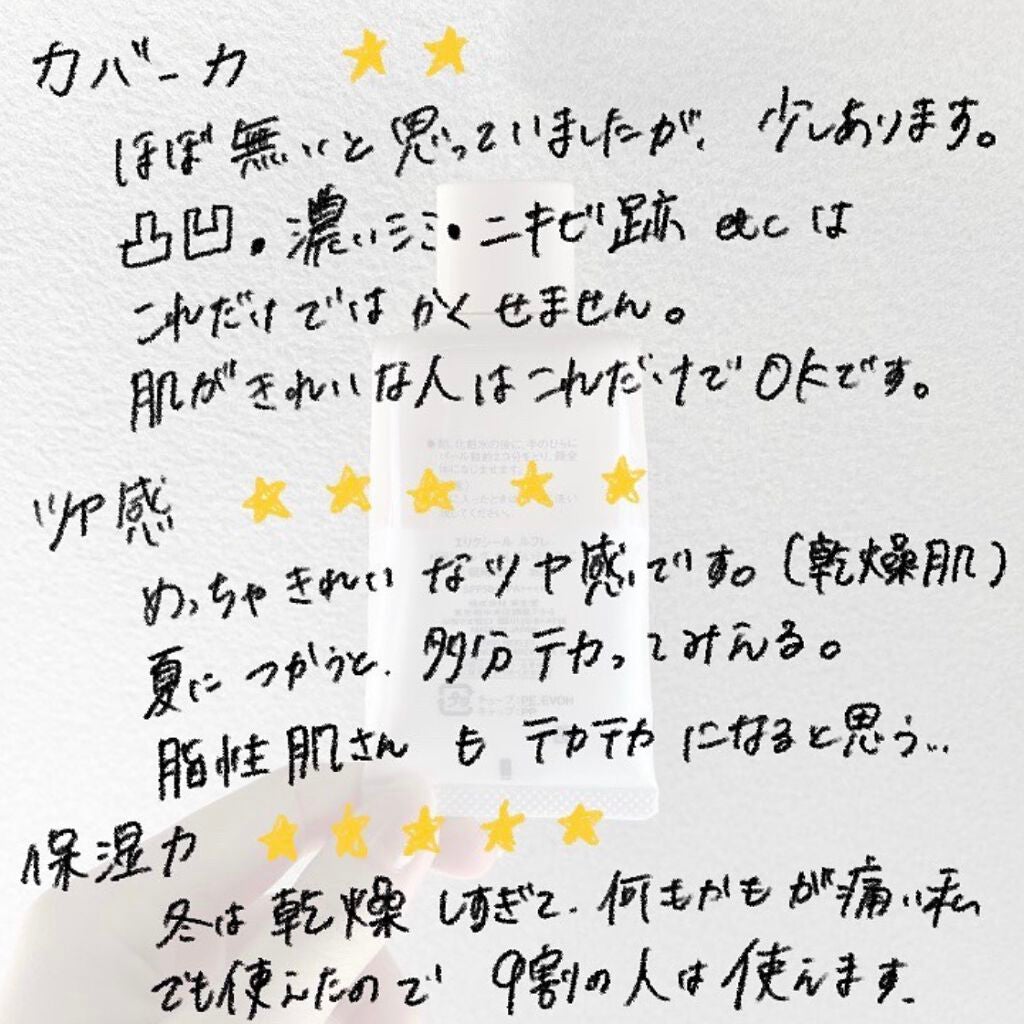 カバー力 ★★
ほぼ無いと思っていましたが、少しあります。
凸凹・濃いシミ・ニキビ跡 etc は
これだけではかくせません。
肌がきれいな人はこれだけでOKです。
ツヤ感 ★★★★★
めっちゃきれいなツヤ感です。(乾燥肌)
夏につかうと、多分テカってみえる。
脂性肌さんもテカテカになると思う…
保湿力 ★★★★★
冬は乾燥しすぎて、何もかもが痛い私
でも使えたので9割の人は使えます。
エリクシール ルフレ
チューブ:PE,EVOH
キャップ:PP